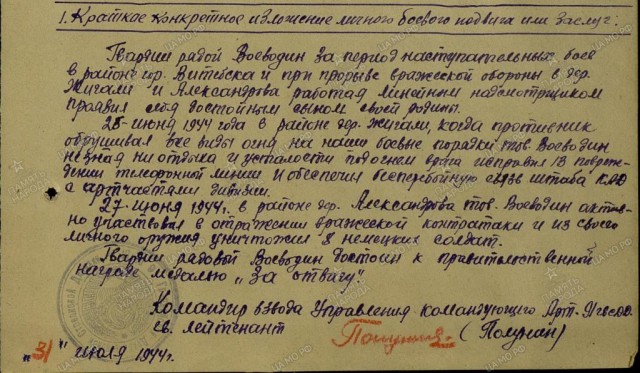 1. Краткое конкретное изложение личного боевого подвига или заслуг:
Гвардии рядой Воеводин за период наступательных боев
в районе гор. Витебска и при прорыве вражеской обороны в дер.
Жигали и Александрова работая линейным надсмотрщиком
проявил себя достойным сыном своей родины.
25 июня 1944 года в районе дер. Жигали, когда противник
обрушивал все виды огня на наши боевые порядки тов. Воеводин
не зная ни отдыха и усталости под огнем врага исправил 13 повреж-
дений телефонный линии и обеспечил бесперебойную связь штаба КАД
с артчастями дивизии.
27. июня 1944г. в районе дер. Александрова тов. Воеводин актив-
но участвовал в отражении вражеской контратаки и из своего
личного оружия уничтожил 8 немецких солдат.
Гвардии рядовой Воеводин достоин к правительственной
награде медалью „За отвагу".
Командир взвода Управления командующего Арт.
гв. лейтенант (Полунин)
„31" июля 1944г.